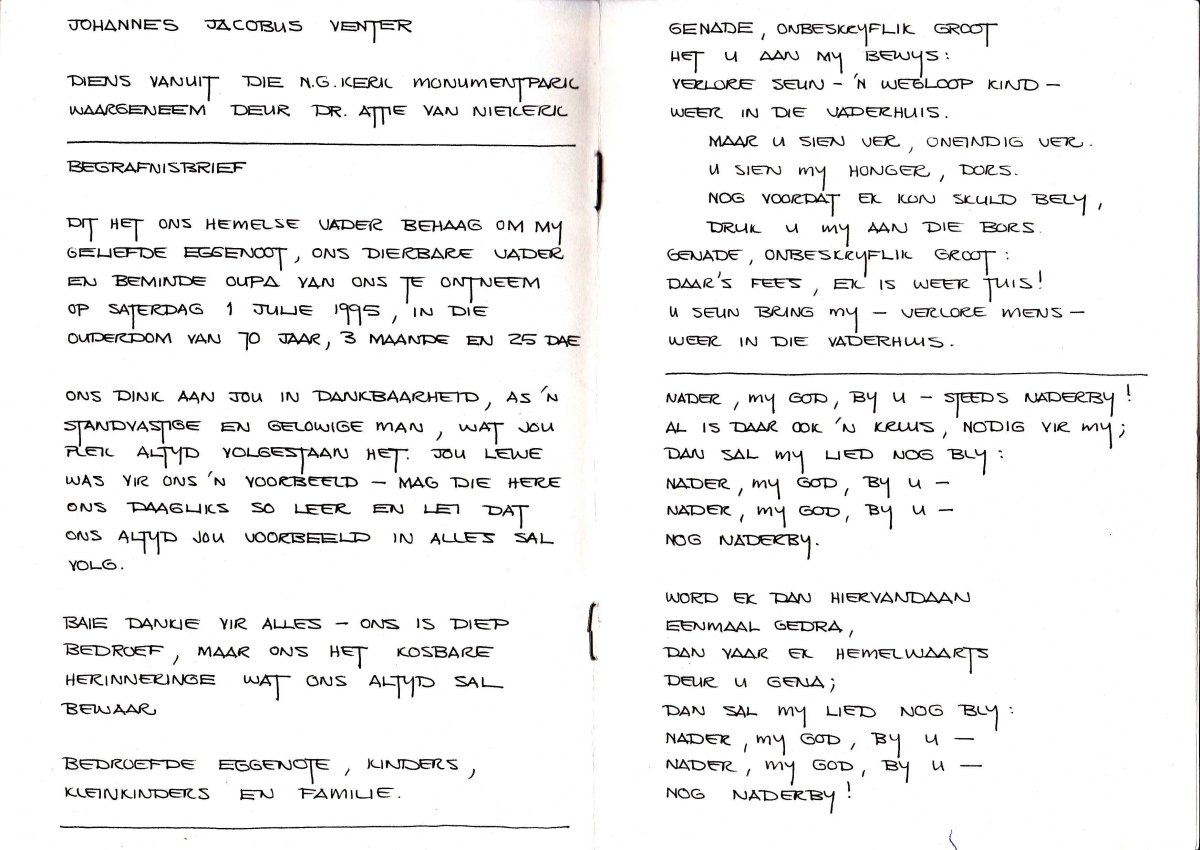 JOHANNES JACOBUS VENTER
DIENS VANUIT DIE N.G. KERK MONUMENTPARK
WAARGENEEM DEUR DR. ATTIE VAN NIEKERK
BEGRAFNISBRIEF
DIT HET ONS HEMELSE VADER BEHAAG OM MY
GELIEFDE EGGENOOT, ONS DIERBARE VADER
EN BEMINDE OUPA VAN ONS TE ONTNEEM
OP SATERDAG 1 JULIE 1995, IN DIE
OUDERDOM VAN 70 JAAR, 3 MAANDE EN 25 DAE
ONS DINK AAN JOU IN DANKBAARHEID, AS 'N
STANDVASTIGE EN GELOWIGE MAN, WAT JOU
PLEK ALTYD VOLGESTAAN HET. JOU LEWE
WAS VIR ONS 'N VOORBEELD – MAG DIE HERE
ONS DAAGLIKS SO LEER EN LEI DAT
ONS ALTYD JOU VOORBEELD IN ALLES SAL
VOLG.
BAIE DANKIE VIR ALLES – ONS IS DIEP
BEDROEF, MAAR ONS HET KOSBARE
HERINNERINGE WAT ONS ALTYD SAL
BEWAAR
BEDROEFDE EGGENOTE, KINDERS,
KLEINKINDERS EN FAMILIE.
GENADE, ONBESKRYFLIK GROOT
HET U AAN MY BEWYS:
VERLORE SEUN – 'N WEGLOOP KIND –
WEER IN DIE VADERHUIS.
MAAR U SIEN VER, ONEINDIG VER.
U SIEN MY HONGER, DORS.
NOG VOORDAT EK KON SKULD BELY,
DRUK U MY AAN DIE BORS.
GENADE, ONBESKRYFLIK GROOT:
DAAR'S FEES, EK IS WEER TUIS!
U SEUN BRING MY – VERLORE MENS –
WEER IN DIE VADERHUIS.
NADER, MY GOD, BY U – STEEDS NADERBY!
AL IS DAAR OOK 'N KRUIS, NODIG VIR MY;
DAN SAL MY LIED NOG BLY:
NADER, MY GOD, BY U –
NADER, MY GOD, BY U –
NOG NADERBY.
WORD EK DAN HIERVANDAAN
EENMAAL GEDRA,
DAN VAAR EK HEMELWAARTS
DEUR U GENA;
DAN SAL MY LIED NOG BLY:
NADER, MY GOD, BY U –
NADER, MY GOD, BY U –
NOG NADERBY!